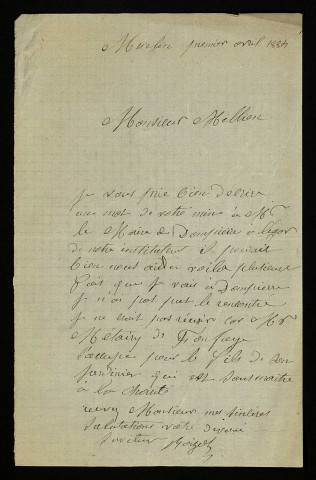 premier avril 1884
Monsieur Millien
Je vous prie bien décrire
un mot de votre main à Mr
le Maire de Dampierre a légar
de notre instituteur il pourait
bien nous aider voila plusieurs
fois que je vais à Dampierre
Je n'ai pas put le rencontré
Je ne sait pas réusir car Mr
Métairy de
pour le fils de son
Jardinier qui est sousmaitre
à la charité
recevez Monsieur mes sinceres
salutations votre devoué
serviteur